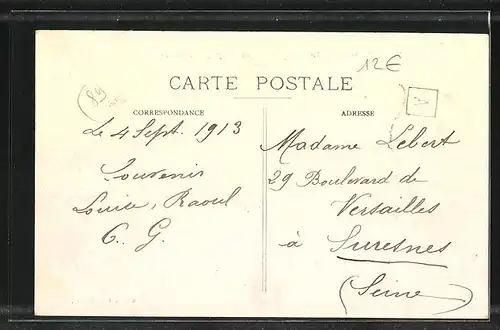 12€
89
CARTE POSTALE
A
CORRESPONDANCE
Le 4 Sept. 1913
Souvenir
Louise, Raoul
C. G.
ADRESSE
Madame Lebert
29 Boulevard de
Versailles
à Suresnes
(Seine)